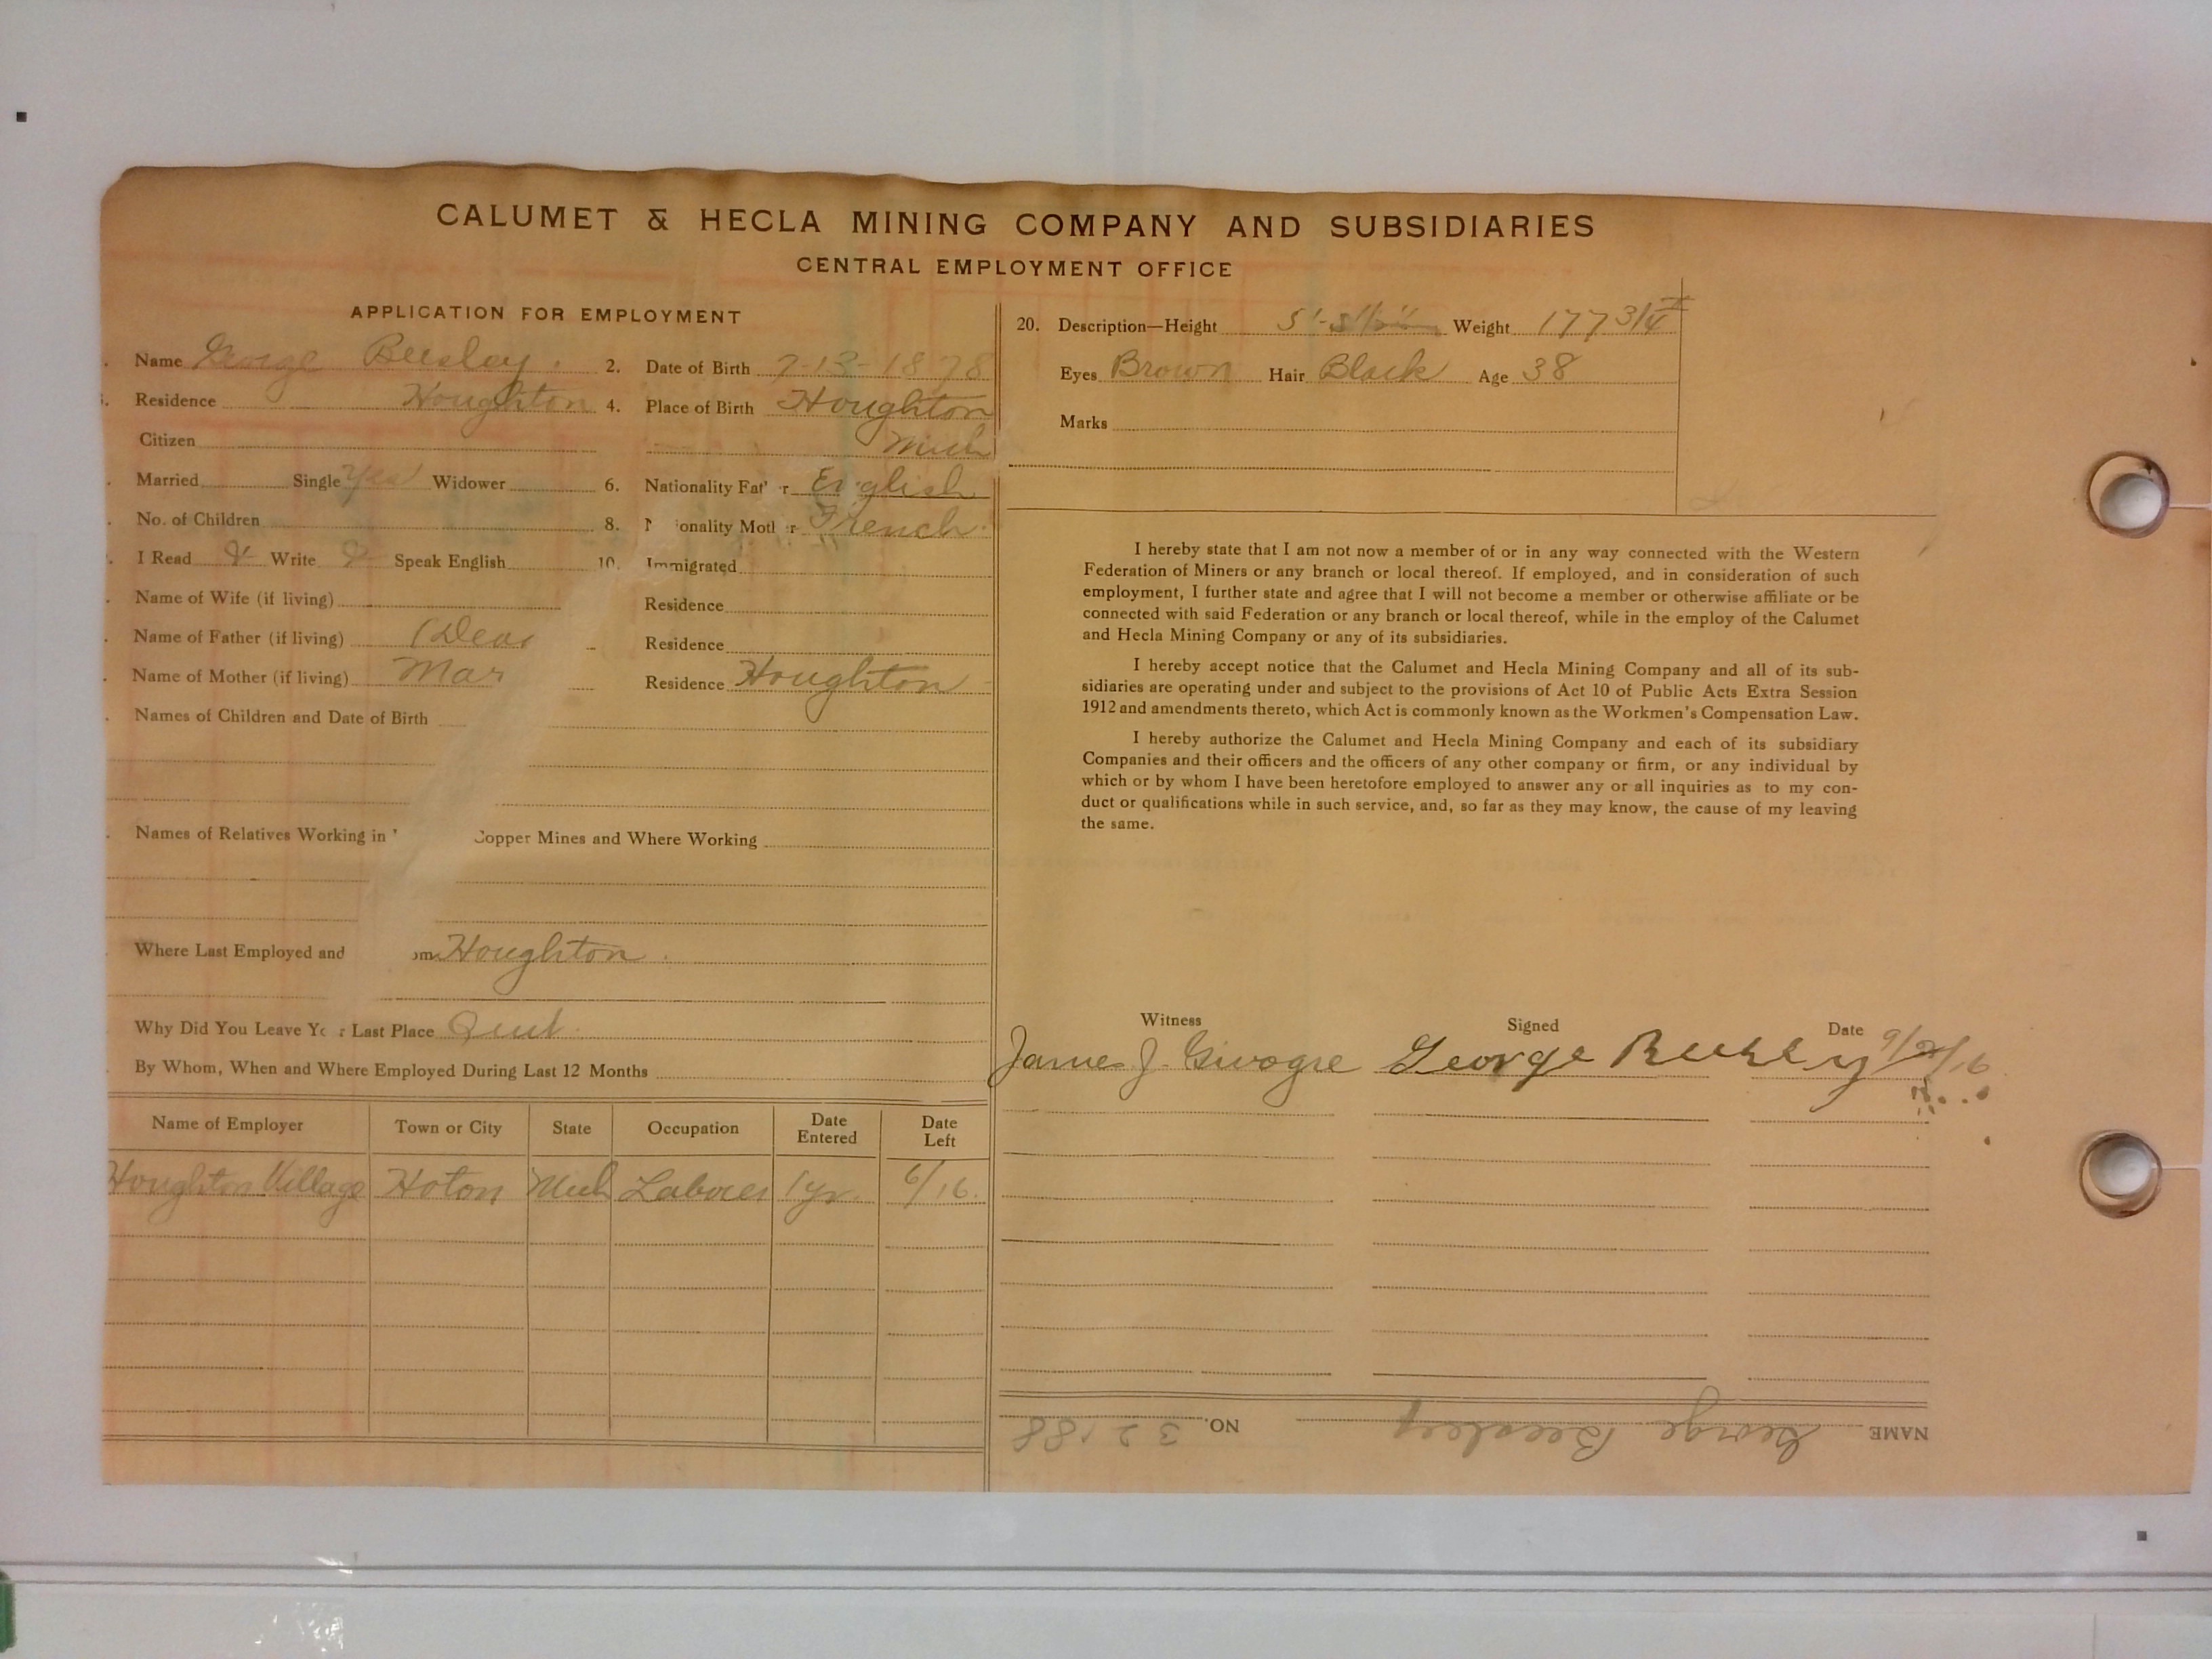 CALUMET & HECLA MINING COMPANY AND SUBSIDIARIES
CENTRAL EMPLOYMENT OFFICE
APPLICATION FOR EMPLOYMENT
Name George Beesley. 2. Date of Birth 7-13-1878
Residence Houghton 4. Place of Birth Houghton
Citizen Mich
Married Single Yes Widower 6. Nationality Fat r English
No. of Children 8. onality Moth r French
I Read Write Speak English 10. Immigrated
Name of Wife (if living) Residence
Name of Father (if living) (Dea Residence
Name of Mother (if living) Mar Residence Houghton
Names of Children and Date of Birth
Names of Relatives Working in Copper Mines and Where Working
Where Last Employed and om Houghton.
Why Did You Leave Yo r Last Place Quit.
By Whom, When and Where Employed During Last 12 Months
Name of Employer Town or City State Occupation Date Entered Date Left
Houghton Village Hoton Mich Laborer 1 yr. 6/16.
20. Description—Height Weight 177 3/4
Eyes Brown Hair Black Age 38
Marks
I hereby state that I am not now a member of or in any way connected with the Western
Federation of Miners or any branch or local thereof. If employed, and in consideration of such
employment, I further state and agree that I will not become a member or otherwise affiliate or be
connected with said Federation or any branch or local thereof, while in the employ of the Calumet
and Hecla Mining Company or any of its subsidiaries.
I hereby accept notice that the Calumet and Hecla Mining Company and all of its sub-
sidiaries are operating under and subject to the provisions of Act 10 of Public Acts Extra Session
1912 and amendments thereto, which Act is commonly known as the Workmen's Compensation Law.
I hereby authorize the Calumet and Hecla Mining Company and each of its subsidiary
Companies and their officers and the officers of any other company or firm, or any individual by
which or by whom I have been heretofore employed to answer any or all inquiries as to my con-
duct or qualifications while in such service, and, so far as they may know, the cause of my leaving
the same.
Witness Signed Date
James J. George Beesley
NAME George Beesley NO. 32188